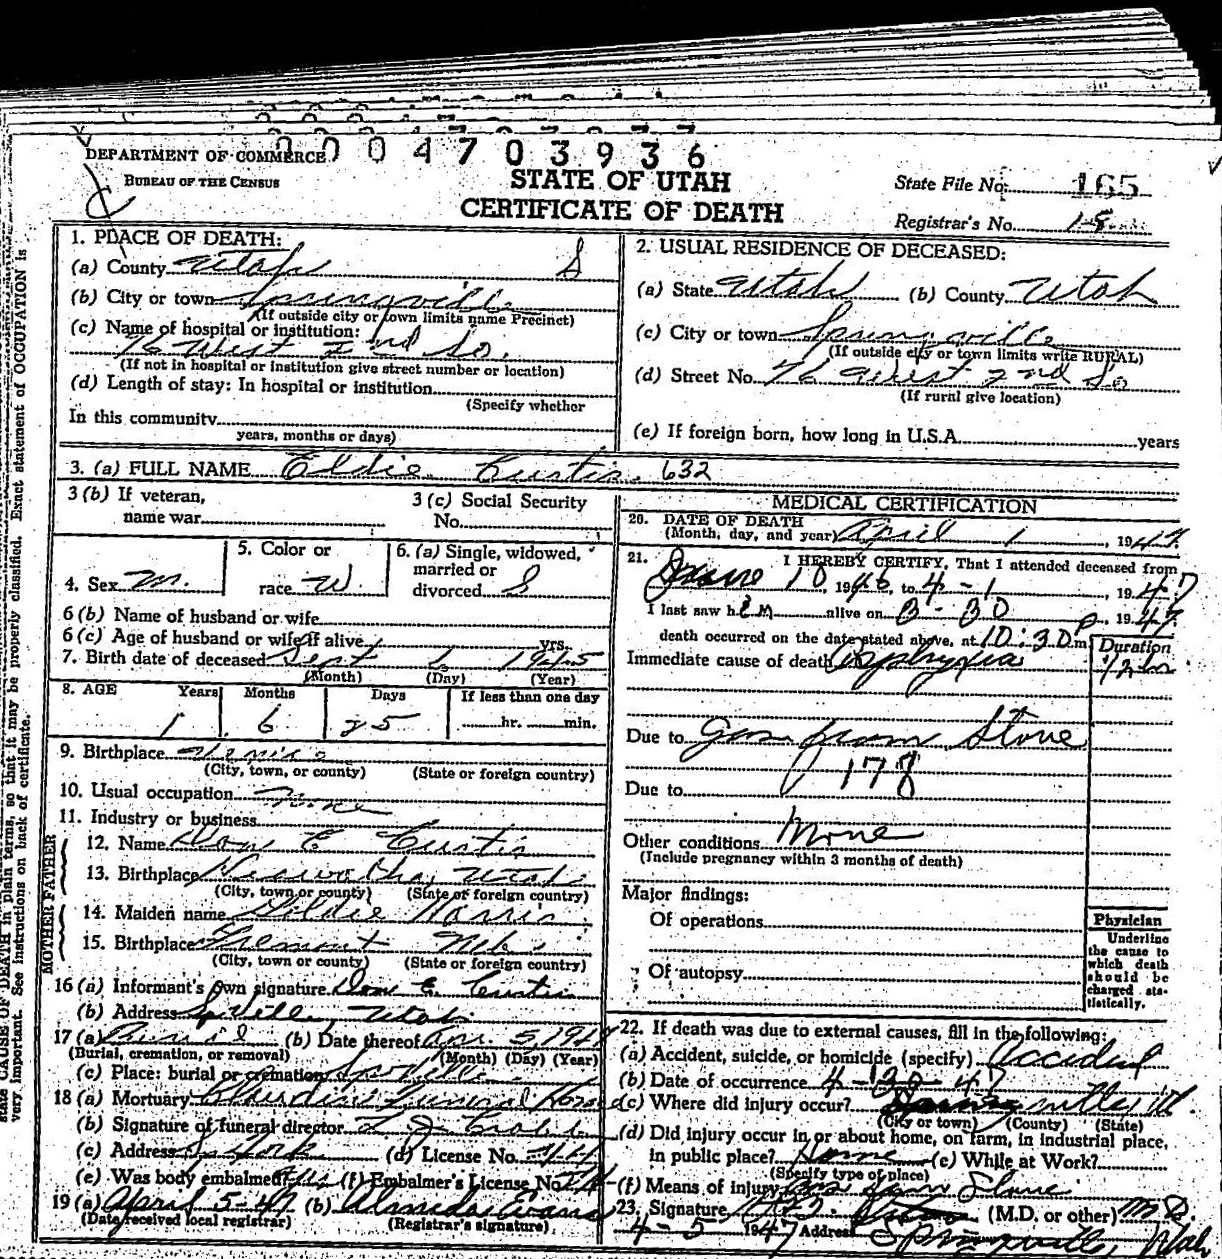 0 0 0 4 7 0 3 9 3 6
DEPARTMENT OF COMMERCE
BUREAU OF THE CENSUS
STATE OF UTAH
CERTIFICATE OF DEATH
State File No. 165
Registrar's No. 18
1. PLACE OF DEATH:
(a) County Utah
(b) City or town Springville
(If outside city or town limits name Precinct)
(c) Name of hospital or institution:
76 West 2nd So.
(If not in hospital or institution give street number or location)
(d) Length of stay: In hospital or institution
(Specify whether
In this community
years, months or days)
2. USUAL RESIDENCE OF DECEASED:
(a) State Utah (b) County Utah
(c) City or town Springville
(If outside city or town limits write RURAL)
(d) Street No. 76 West 2nd So
(If rural give location)
(e) If foreign born, how long in U.S.A. years
3. (a) FULL NAME Eldie Curtis 632
3 (b) If veteran,
name war
3 (c) Social Security
No.
4. Sex M.
5. Color or
race W
6. (a) Single, widowed,
married or
divorced S
6 (b) Name of husband or wife
6 (c) Age of husband or wife if alive yrs.
7. Birth date of deceased Sept 1945
(Month) (Day) (Year)
8. AGE Years Months Days If less than one day
1 6 25 hr. min.
9. Birthplace
(City, town, or county) (State or foreign country)
10. Usual occupation None
11. Industry or business
FATHER
12. Name Don E Curtis
13. Birthplace Hiawatha, Utah
(City, town or county) (State or foreign country)
MOTHER
14. Maiden name Goldie Harris
15. Birthplace Fremont Neb
(City, town or county) (State or foreign country)
16 (a) Informant's own signature Don E. Curtis
(b) Address Spville, Utah
17 (a) Burial (b) Date thereof Apr. 5, 194
(Burial, cremation, or removal) (Month) (Day) (Year)
(c) Place: burial or cremation Spville
18 (a) Mortuary Funeral Home
(b) Signature of funeral director
(c) Address (d) License No.
(e) Was body embalmed? (f) Embalmer's License No.
19 (a) April 5-47 (b) Almeda Evans
(Date received local registrar) (Registrar's signature)
MEDICAL CERTIFICATION
20. DATE OF DEATH
(Month, day, and year) April 1, 1947
21. I HEREBY CERTIFY, That I attended deceased from
June 10, 1946, to 4-1, 1947
I last saw h im alive on 3-30, 1947
death occurred on the date stated above, at 10:30 p m
Duration
Immediate cause of death Asphyxia 1/2 hr
Due to Gas from Stove
178
Due to
Other conditions None
(Include pregnancy within 3 months of death)
Major findings:
Of operations
Of autopsy
Physician
Underline
the cause to
which death
should be
charged sta-
tistically.
22. If death was due to external causes, fill in the following:
(a) Accident, suicide, or homicide (specify) Accident
(b) Date of occurrence
(c) Where did injury occur?
(City or town) (County) (State)
(d) Did injury occur in or about home, on farm, in industrial place,
in public place? Home (e) While at Work?
(Specify type of place)
(f) Means of injury Gas from Stove
23. Signature (M.D. or other) M.D.
4-5 1947 Address Springville, Utah
state CAUSE OF DEATH in plain terms, so that it may be properly classified. Exact statement of OCCUPATION is
very important. See instructions on back of certificate.